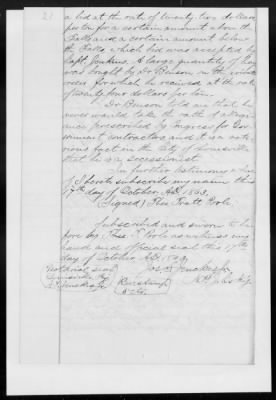 a bid at the rate of twenty two dollars
per ton for a certain amount above the
Falls and a certain amount below
the Falls, which bid was accepted by
Capt. Jenkins. A large quantity of Hay
was bought by Dr Benson in the
order for which he received at the rate
of twenty four dollars per ton.
Dr Benson told me that he
never would take the oath of allegi-
ance prescribed by Congress for Gov-
ernment contractors and it is a noto-
rious fact in the City of Louisville
that he is a secessionist.
In further testimony where-
of I hereto subscribe my name this
17th day of October A.D. 1863.
(Signed) Thos Pratt Poole.
Subscribed and sworn to be-
fore by Thos P. Poole as witness my
hand and official seal this 17th
day of October A.D. 1863.
Notarial seal
Louisville Ky
Rev stamp
5 cts.